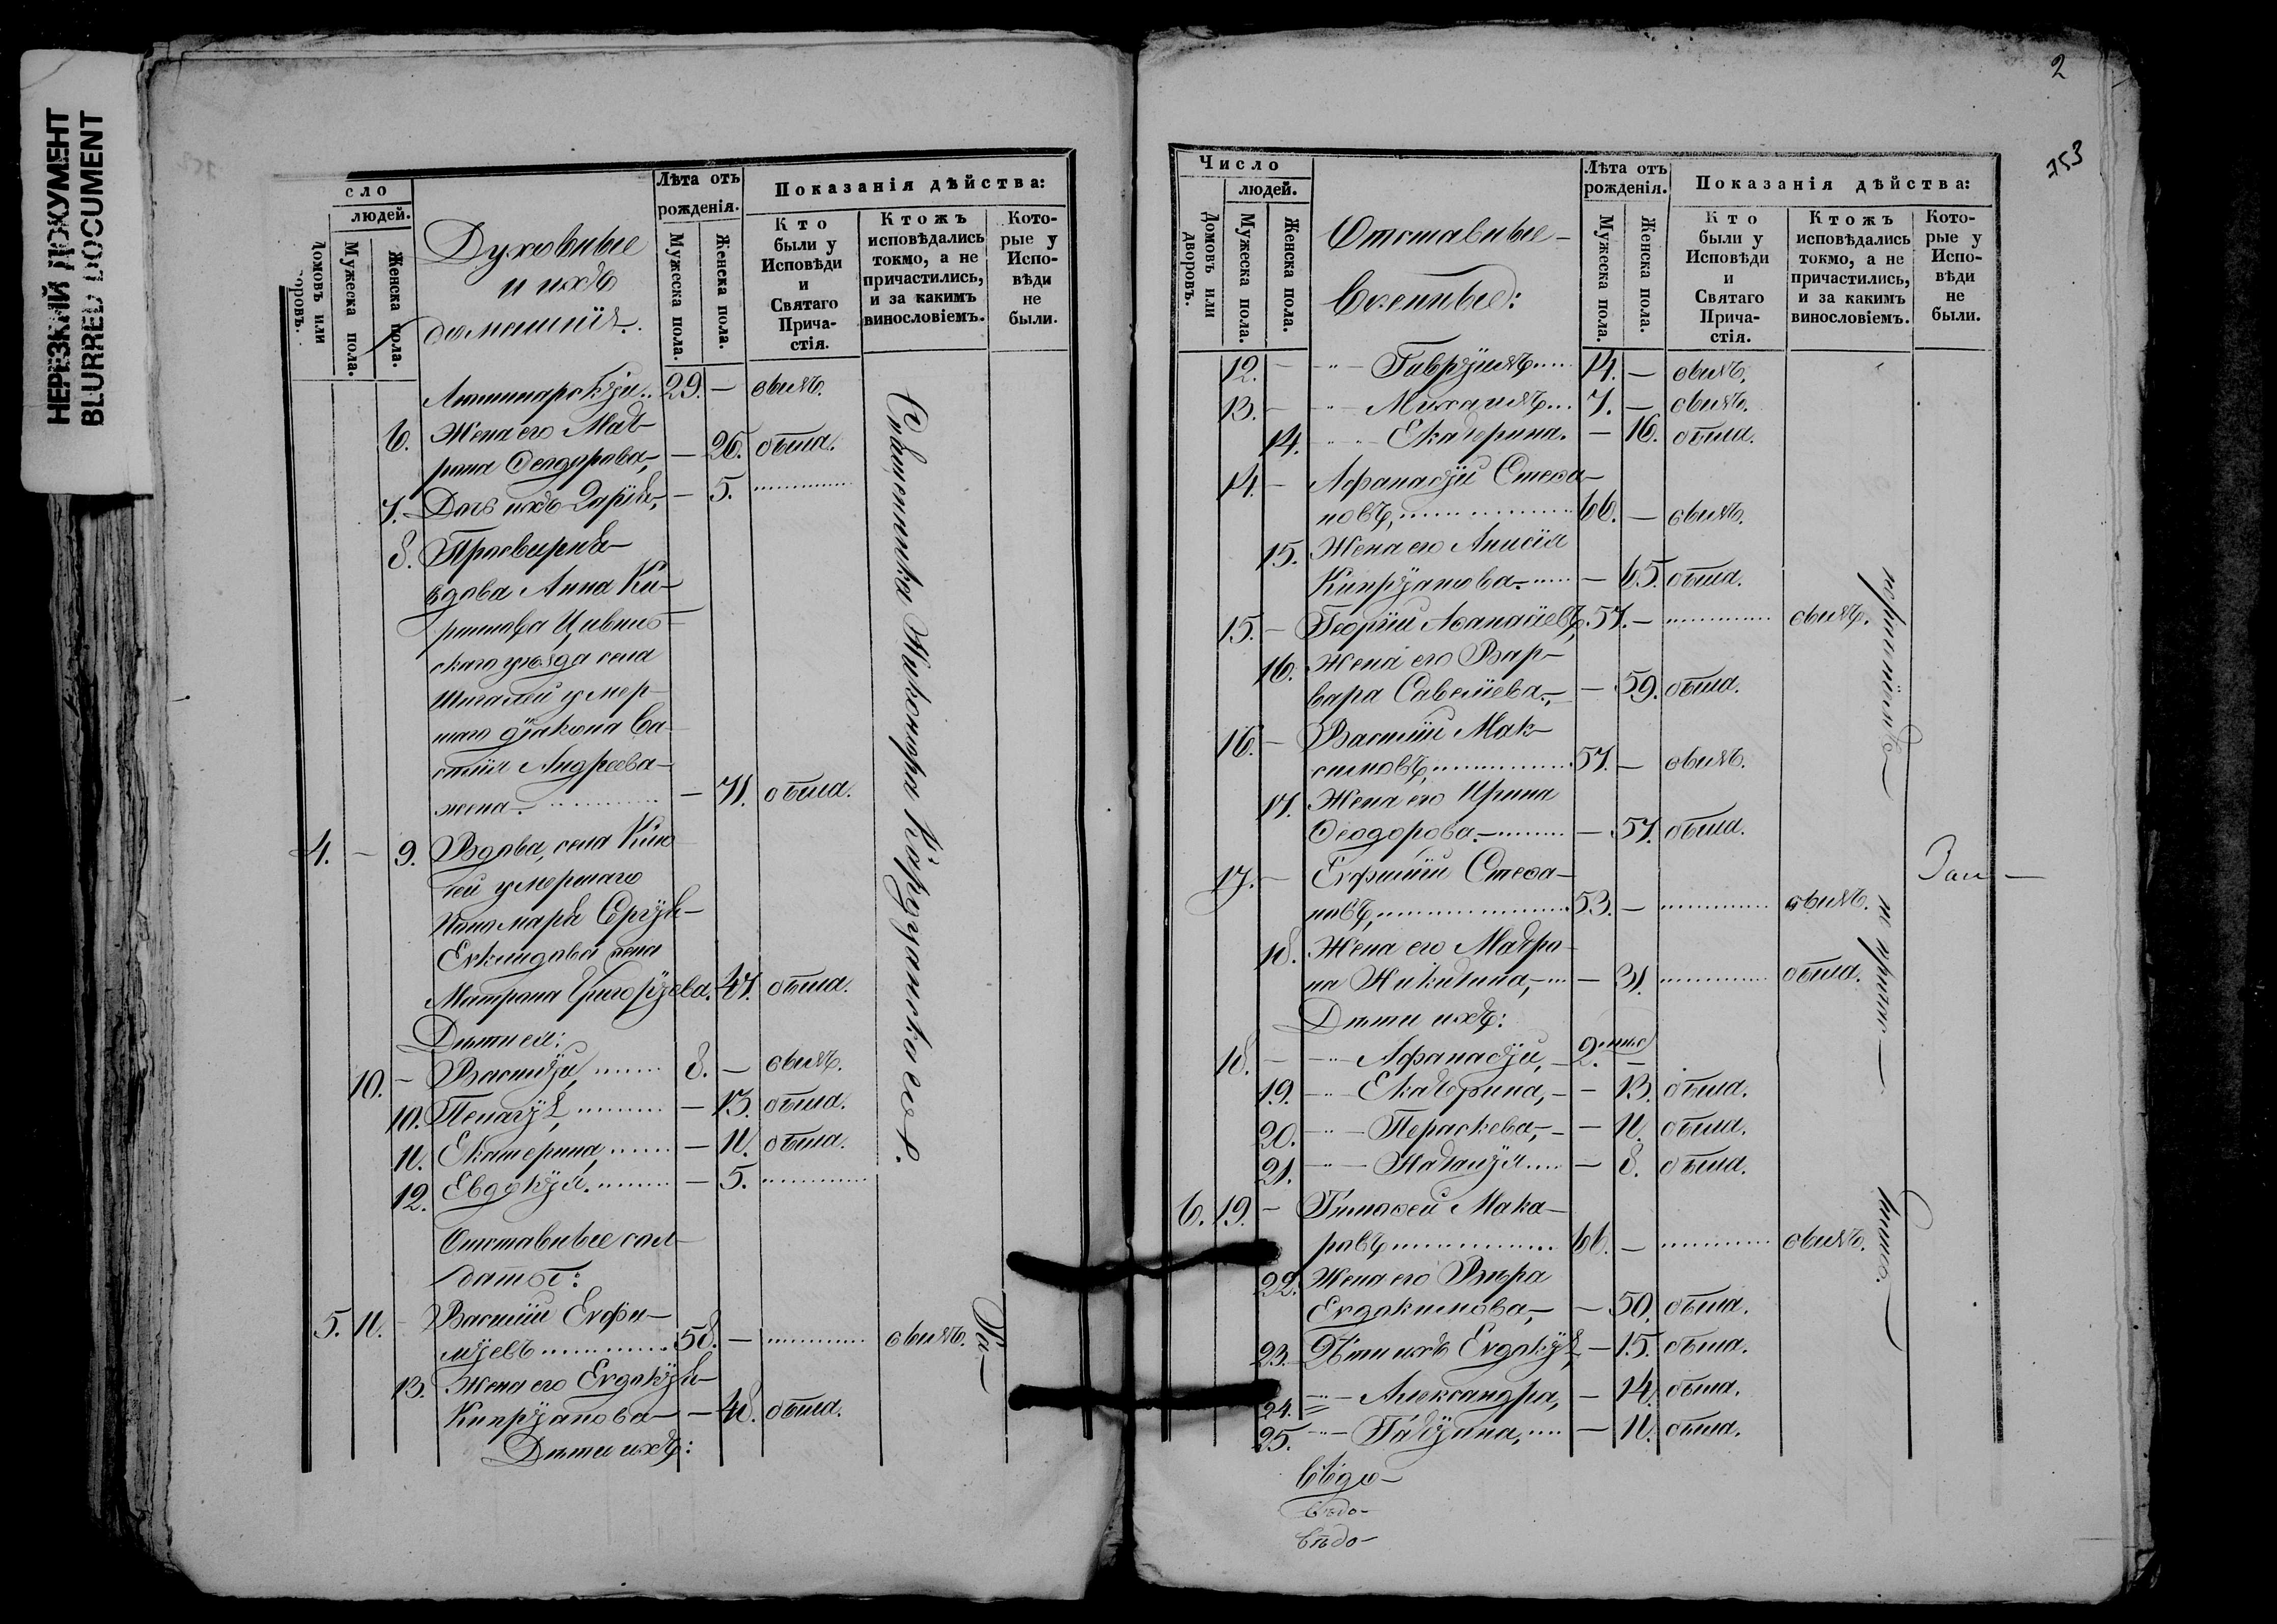 НЕРЕЗКИЙ ДОКУМЕНТ
BLURRED DOCUMENT
сло
людей.
Домовъ или
воровъ.
Мужеска пола.
Женска пола.
Духовные
и ихъ
домашнія.
Лѣта отъ
рожденія.
Мужеска пола.
Женска пола.
Показанія дѣйства:
Кто
были у
Исповѣди
и
Святаго
Прича-
стія.
Ктожъ
исповѣдались
токмо, а не
причастились,
и за какимъ
винословіемъ.
Кото-
рые у
Испо-
вѣди
не
были.
29. — былъ.
6. Жена его Мат-
рона Ѳеодорова, — 26. была.
7. Дочь ихъ Дарія, — 5.
8. Просвирня
вдова Анна Ки-
рилова Цивиль-
скаго уѣзда села
Шигалей умер-
шаго діакона Ва-
силія Андреева
жена. — 71. была.
4. — 9. Вдова, села
умершаго
Пономаря Сергія
Евкидова жена
Матрона Григоріева. 47. была.
Дѣти ея:
10. — Василій, 8. — былъ.
10. Пелагія, — 13. была.
11. Екатерина, — 11. была.
12. Евдокія. — 5.
Отставные сол-
даты:
5. 11. — Василій Евфи-
міевъ 58. — былъ.
13. Жена его Евдокія
Кипріанова — 48. была.
Дѣти ихъ:
Священника Никонора
Ра-
2
253
Число
людей.
Домовъ или
дворовъ.
Мужеска пола.
Женска пола.
Отставные
Военные:
Лѣта отъ
рожденія.
Мужеска пола.
Женска пола.
Показанія дѣйства:
Кто
были у
Исповѣди
и
Святаго
Прича-
стія.
Ктожъ
исповѣдались
токмо, а не
причастились,
и за какимъ
винословіемъ.
Кото-
рые у
Испо-
вѣди
не
были.
12. — Гавріилъ 14. — былъ.
13. — Михаилъ 7. — былъ.
14. — Екатерина. — 16. была.
14. — Афанасій Стефа-
новъ, 66. — былъ.
15. Жена его Анисія
Кипріанова. — 65. была.
15. — Георгій Афанасіевъ, 57. — былъ.
16. Жена его Вар-
вара Савеліева, — 59. была.
16. — Василій Мак-
симовъ, 57. — былъ.
17. Жена его Ирина
Ѳеодорова. — 57. была.
17. — Евфимій Стефа-
новъ, 53. — былъ.
18. Жена его Матро-
на Никитина, — 31. была.
Дѣти ихъ:
18. — Афанасій, 2. —
19. — Екатерина, — 13. была.
20. — Пераскева, — 11. была.
21. — Наталія — 8. была.
6. 19. — Тимофей Мака-
ровъ 66. — былъ.
22. Жена его Вѣра
Евдокимова, — 50. была.
23. Дѣти ихъ Евдокія, — 15. была.
24. — Александра, — 14. была.
25. — Татіана, — 11. была.
вѣдо-
вѣдо-
вѣдо-